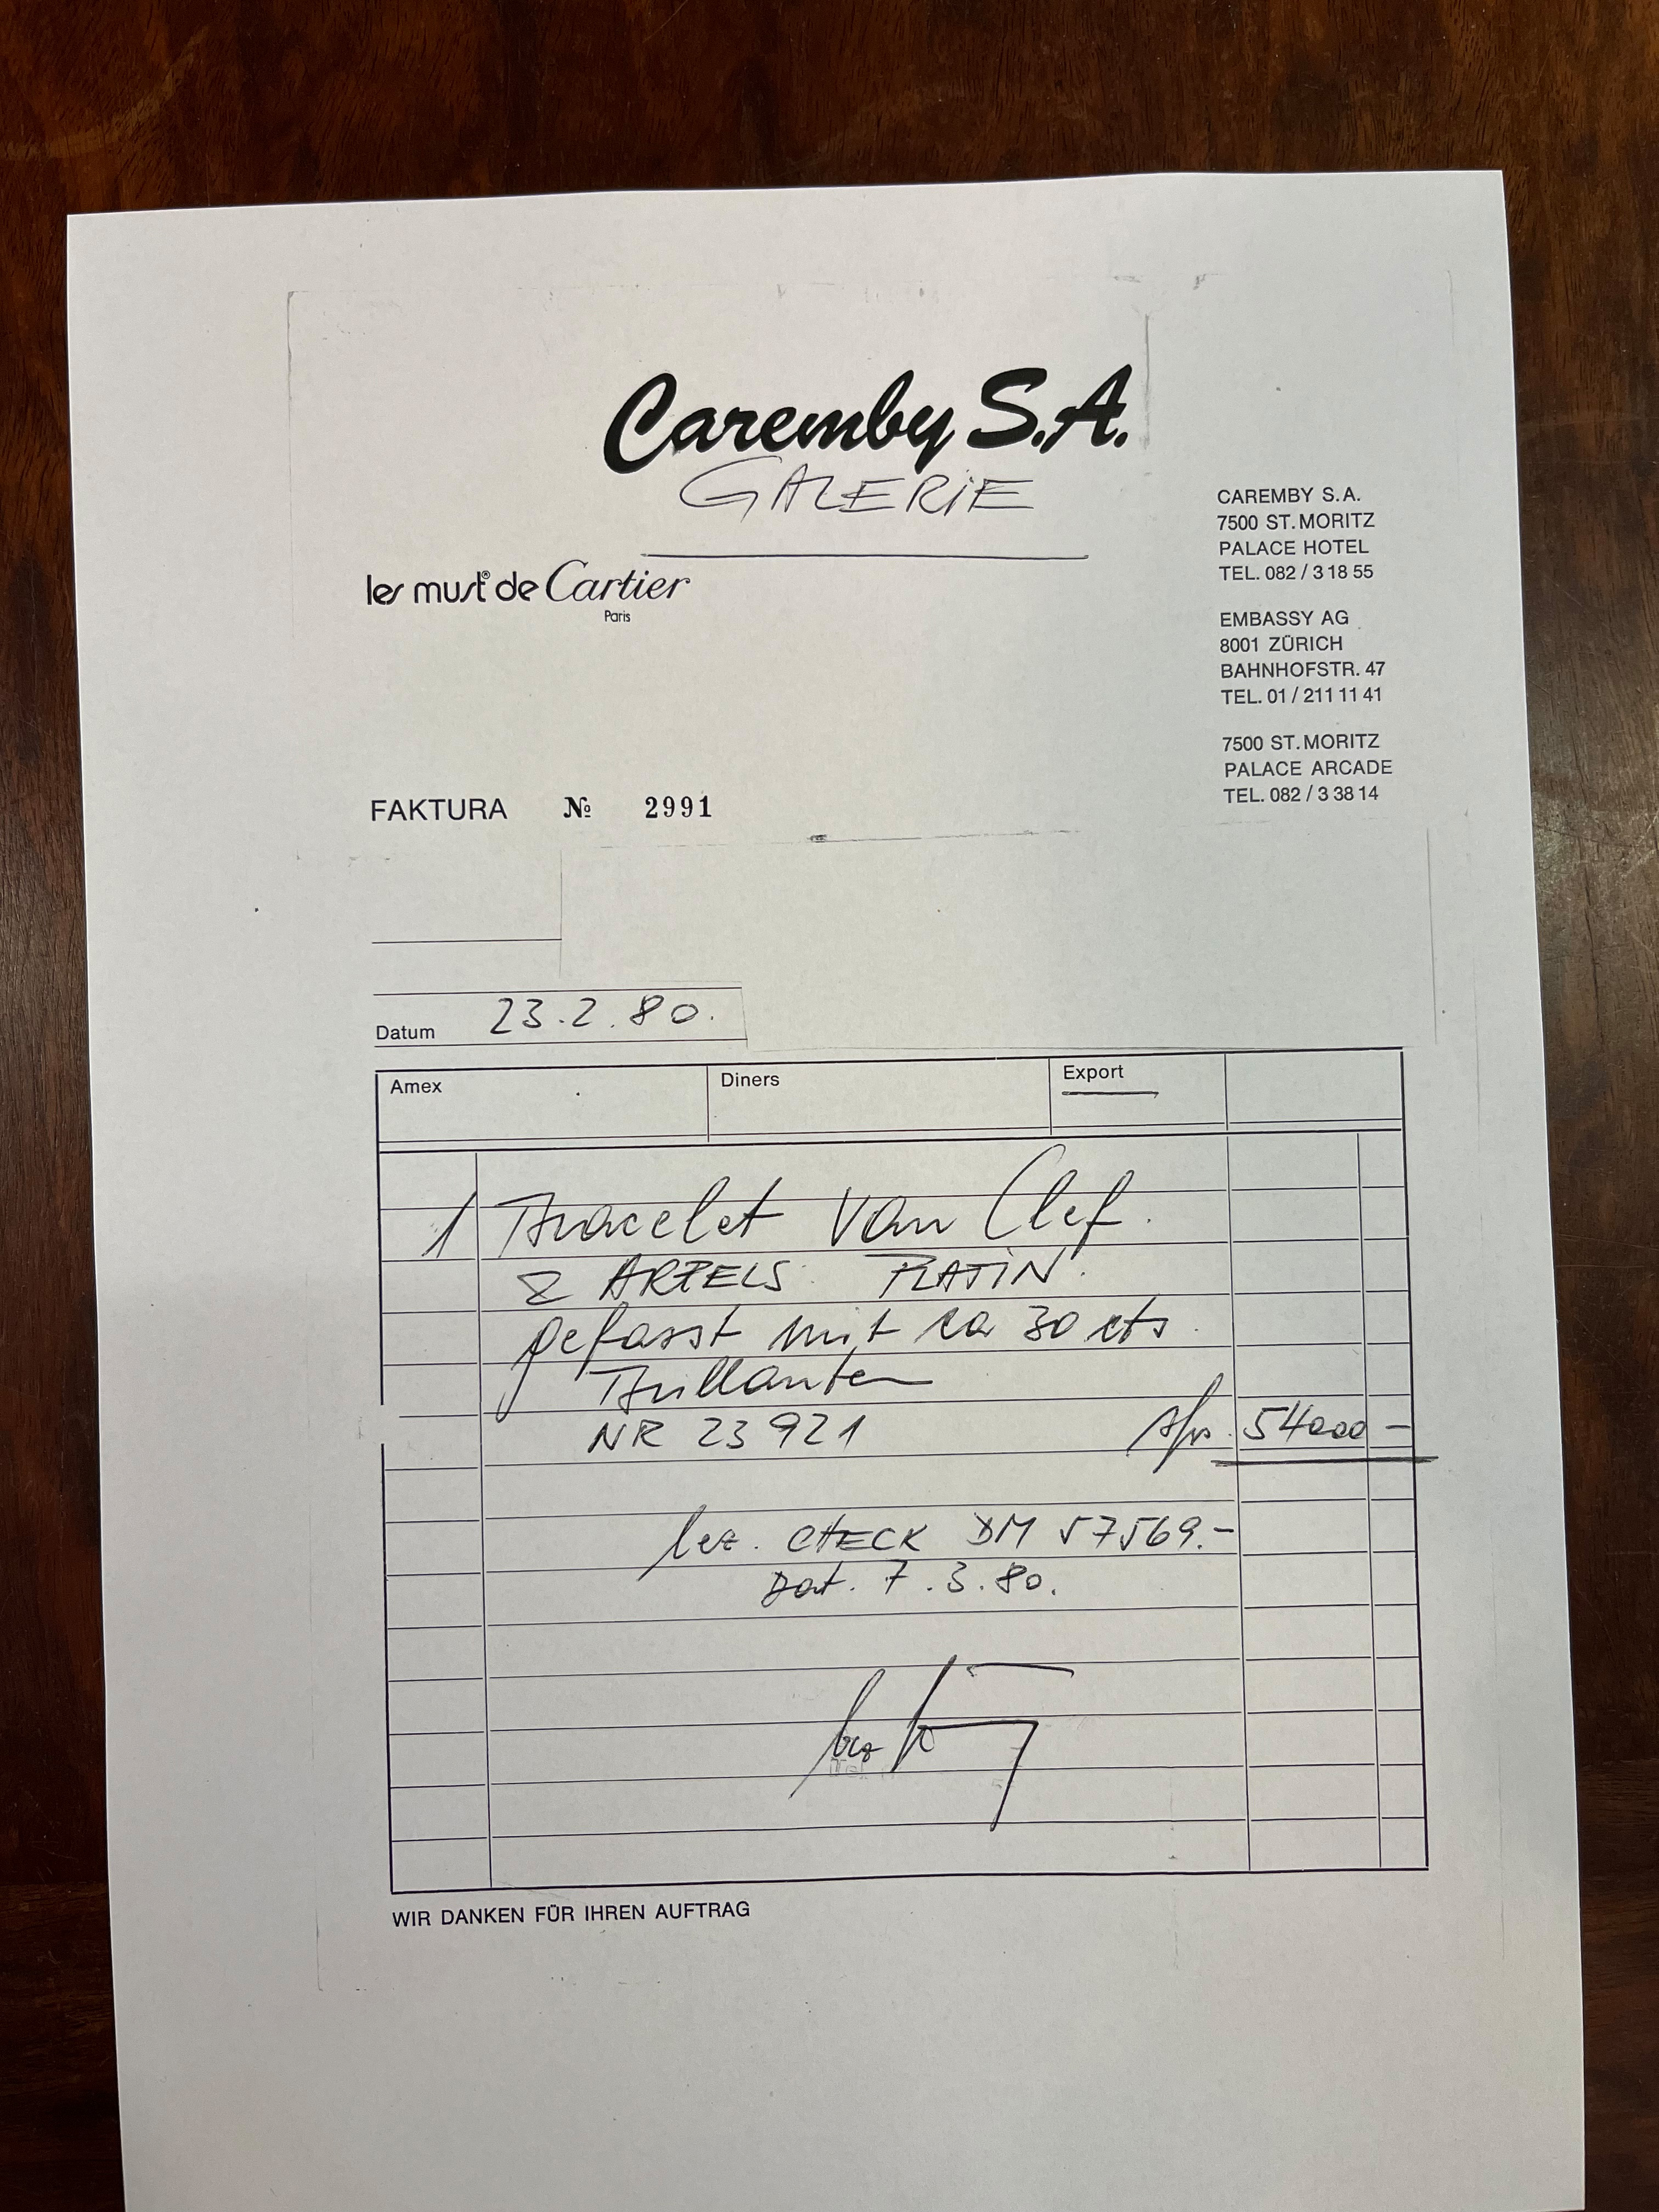 Caremby S.A.
GALERIE
les must® de Cartier
Paris
CAREMBY S.A.
7500 ST. MORITZ
PALACE HOTEL
TEL. 082 / 3 18 55
EMBASSY AG
8001 ZÜRICH
BAHNHOFSTR. 47
TEL. 01 / 211 11 41
7500 ST. MORITZ
PALACE ARCADE
TEL. 082 / 3 38 14
FAKTURA № 2991
Datum 23.2.80.
Amex Diners Export
1 Bracelet Van Clef.
& ARPELS PLATIN.
gefasst mit ca 30 cts.
Brillanten
NR 23921 sfr. 54000 –
bez. CHECK DM 57569.–
Dat. 7.3.80.
WIR DANKEN FÜR IHREN AUFTRAG